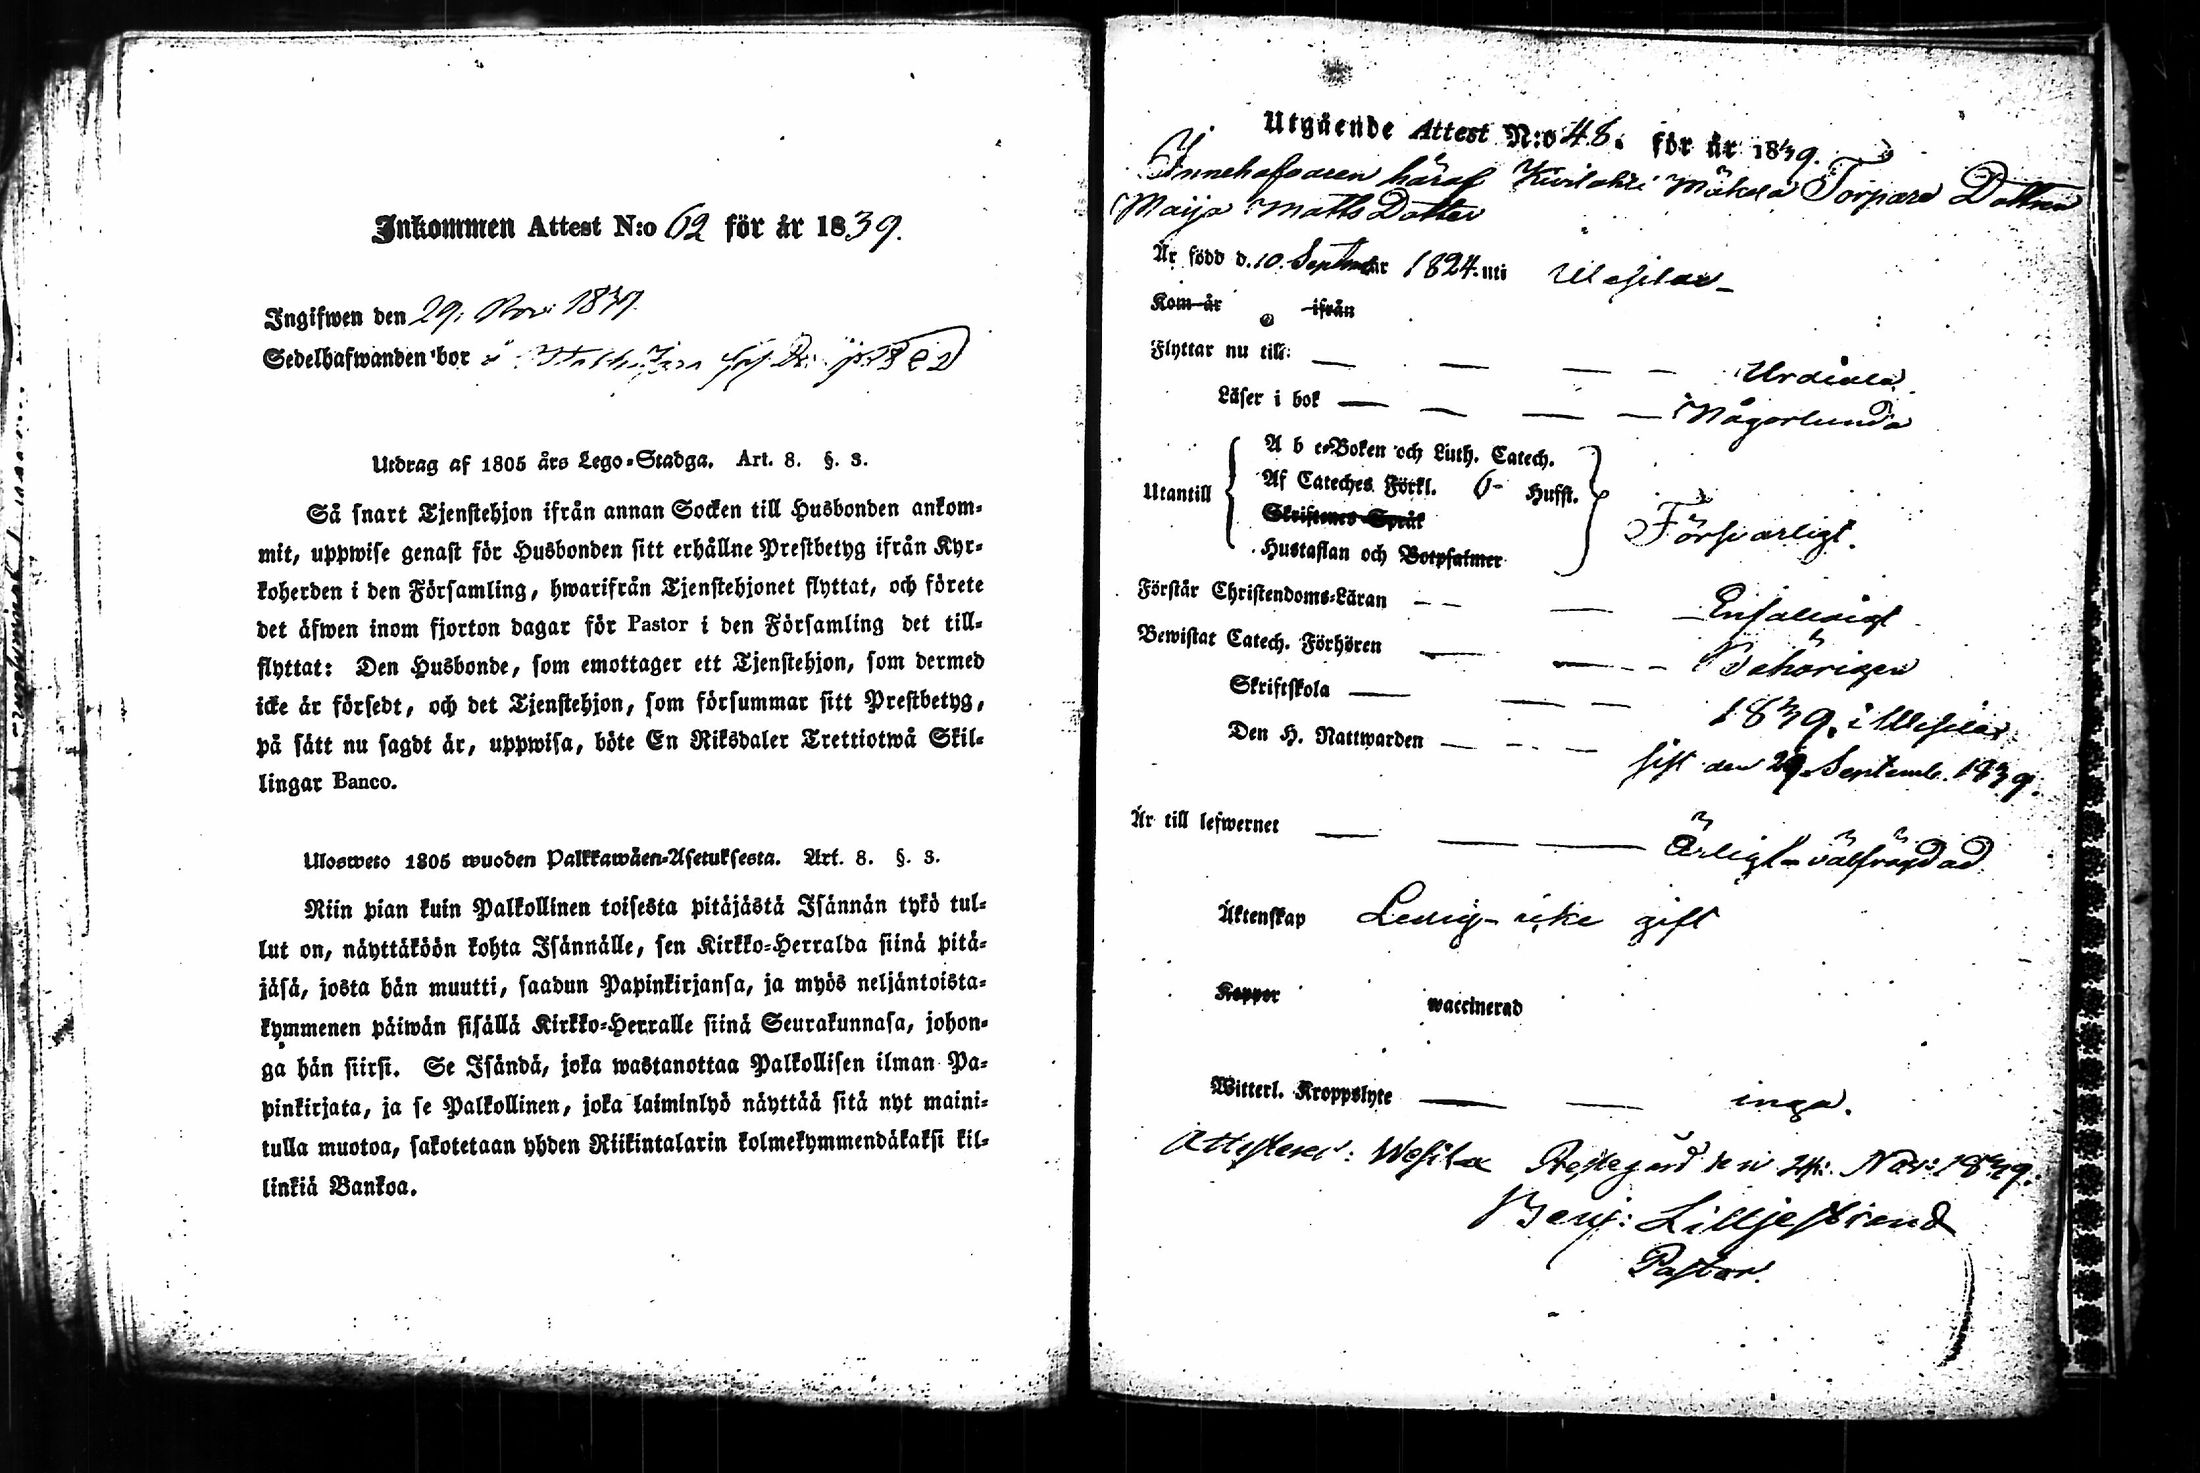 Inkommen Attest N:o 62 för år 1839.
Ingifwen den 29: Nov: 1839
Sedelhafwanden bor
Utdrag af 1805 års Lego-Stadga. Art. 8. §. 3.
Så snart Tjenstehjon ifrån annan Socken till Husbonden ankom-
mit, uppwise genast för Husbonden sitt erhållne Prestbetyg ifrån Kyr-
koherden i den Församling, hwarifrån Tjenstehjonet flyttat, och förete
det äfwen inom fjorton dagar för Pastor i den Församling det till-
flyttat: Den Husbonde, som emottager ett Tjenstehjon, som dermed
icke är försedt, och det Tjenstehjon, som försummar sitt Prestbetyg,
på sätt nu sagdt är, uppwisa, böte En Riksdaler Trettiotwå Skil-
lingar Banco.
Ulosweto 1805 wuoden Palkkawäen-Asetuksesta. Art. 8. §. 3.
Niin pian kuin Palkollinen toisesta pitäjästä Isännän tykö tul-
lut on, näyttäköön kohta Isännälle, sen Kirkko-Herralda siinä pitä-
jäsä, josta hän muutti, saadun Papinkirjansa, ja myös neljäntoista-
kymmenen päiwän sisällä Kirkko-Herralle siinä Seurakunnasa, johon-
ga hän siirsi. Se Isändä, joka wastanottaa Palkollisen ilman Pa-
pinkirjata, ja se Palkollinen, joka laiminlyö näyttää sitä nyt maini-
tulla muotoa, sakotetaan yhden Riikintalarin kolmekymmendäkaksi kil-
linkiä Bankoa.
Utgående Attest N:o 48. för år 1839.
Innehafvaren häraf Mäkelä Torpare Dottren
Maija Matts Dotter
Är född d. 10. Septembr 1824. uti Wesilax
Kom år ifrån
Flyttar nu till: Urdiala
Läser i bok Någorlunda
A b c-Boken och Luth. Catech.
Utantill Af Cateches Förkl. 6 Hufst.
Skriftenes Språk Försvarligt.
Hustaflan och Botpsalmer
Förstår Christendoms-Läran Enfaldigt
Bewistat Catech. Förhören Behörigen
Skriftskola 1839. i Wesilax
Den H. Nattwarden sist den 29 Septemb. 1839.
Är till lefwernet Ärligt välfrägdad
Äktenskap Ledig - icke gift
Koppor waccinerad
Witterl. Kroppslyte inga.
Attesterar: Wesilax Prestegård den 24: Nov: 1839.
Benj: Lilljestrand
Pastor.